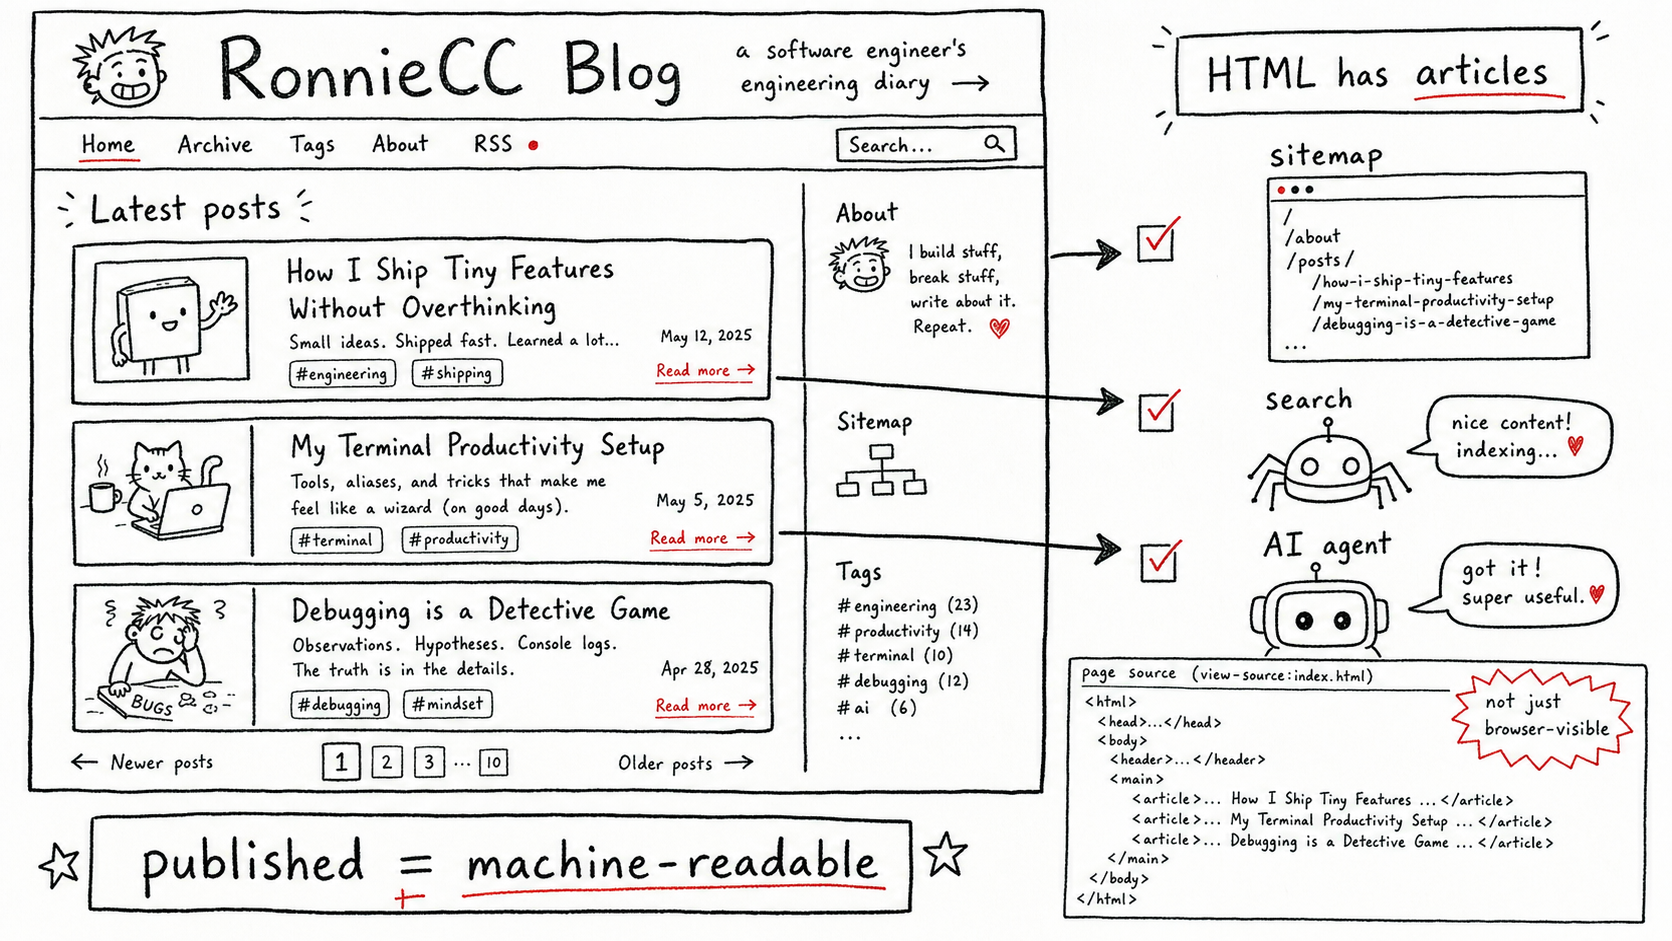 RonnieCC Blog
a software engineer's
engineering diary →
Home Archive Tags About RSS
Search...
Latest posts
How I Ship Tiny Features
Without Overthinking
Small ideas. Shipped fast. Learned a lot...
May 12, 2025
#engineering #shipping
Read more →
My Terminal Productivity Setup
Tools, aliases, and tricks that make me
feel like a wizard (on good days).
May 5, 2025
#terminal #productivity
Read more →
BUGS
Debugging is a Detective Game
Observations. Hypotheses. Console logs.
The truth is in the details.
Apr 28, 2025
#debugging #mindset
Read more →
← Newer posts
1 2 3 ... 10
Older posts →
About
I build stuff,
break stuff,
write about it.
Repeat.
Sitemap
Tags
#engineering (23)
#productivity (14)
#terminal (10)
#debugging (12)
#ai (6)
...
published = machine-readable
+
HTML has articles
sitemap
/
/about
/posts/
/how-i-ship-tiny-features
/my-terminal-productivity-setup
/debugging-is-a-detective-game
...
search
nice content!
indexing...
AI agent
got it!
super useful.
page source (view-source:index.html)
not just
browser-visible
<html>
<head>...</head>
<body>
<header>...</header>
<main>
<article>... How I Ship Tiny Features ...</article>
<article>... My Terminal Productivity Setup ...</article>
<article>... Debugging is a Detective Game ...</article>
</main>
</body>
</html>